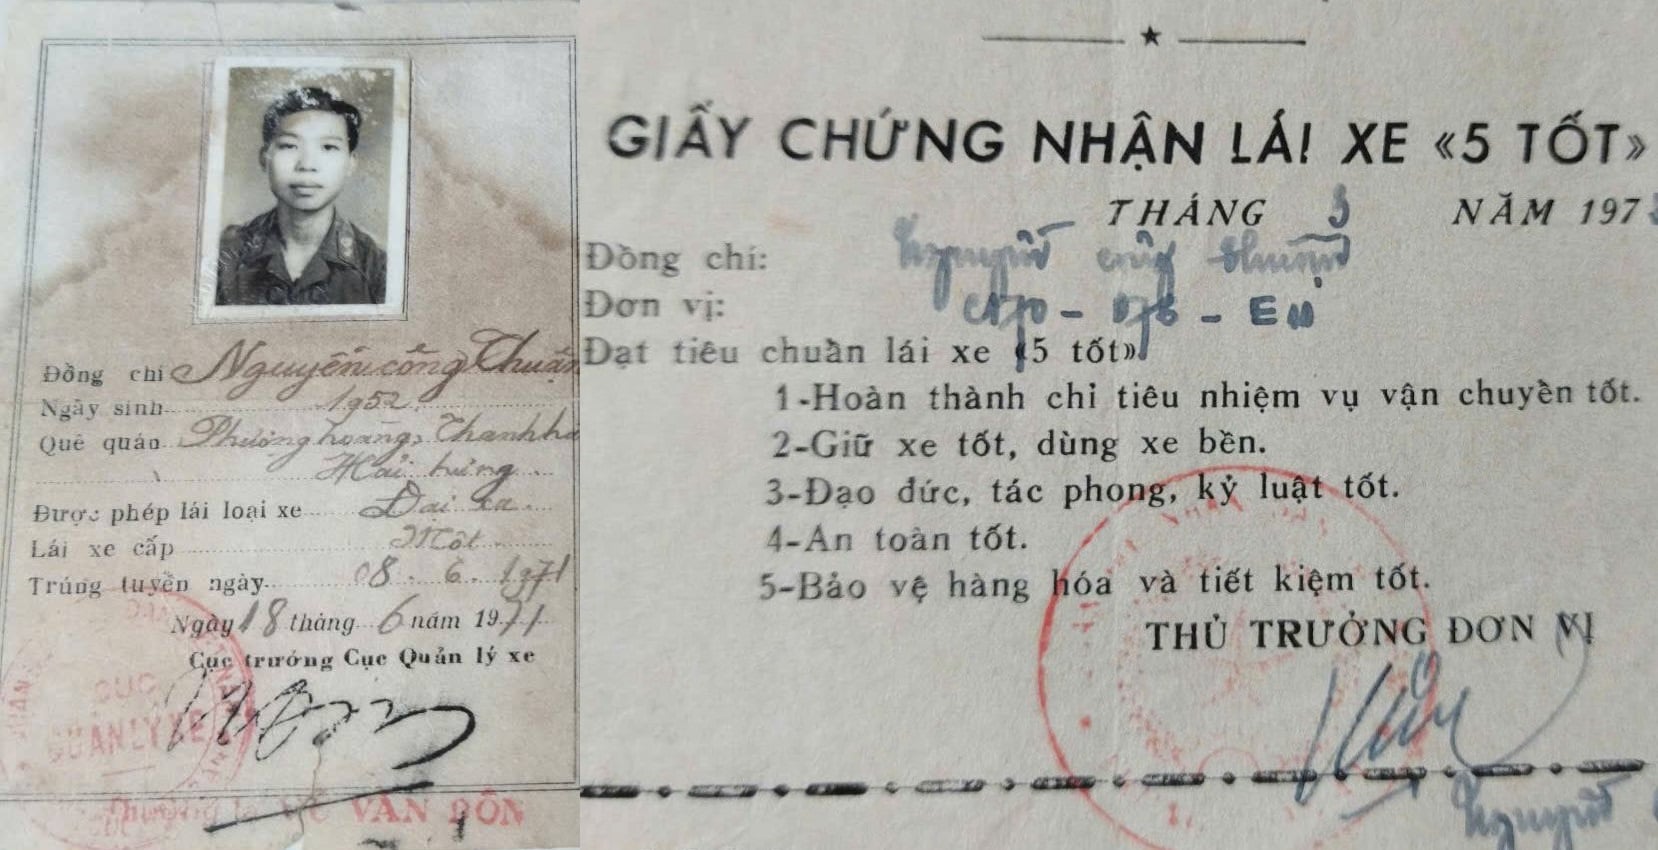 Đồng chí Nguyễn công Thuận
Ngày sinh 1952
Quê quán Phượng hoàng, Thanh hà
Hải hưng
Được phép lái loại xe Đại xa
Lái xe cấp Một
Trúng tuyển ngày 08.6.1971
Ngày 18 tháng 6 năm 1971
Cục trưởng Cục Quản lý xe
CỤC
QUẢN LÝ XE
VŨ VĂN ĐÔN
GIẤY CHỨNG NHẬN LÁI XE «5 TỐT»
THÁNG 3 NĂM 197
Đồng chí: Nguyễn công Thuận
Đơn vị:
Đạt tiêu chuẩn lái xe «5 tốt»
1-Hoàn thành chỉ tiêu nhiệm vụ vận chuyển tốt.
2-Giữ xe tốt, dùng xe bền.
3-Đạo đức, tác phong, kỷ luật tốt.
4-An toàn tốt.
5-Bảo vệ hàng hóa và tiết kiệm tốt.
THỦ TRƯỞNG ĐƠN VỊ
Nguyễn